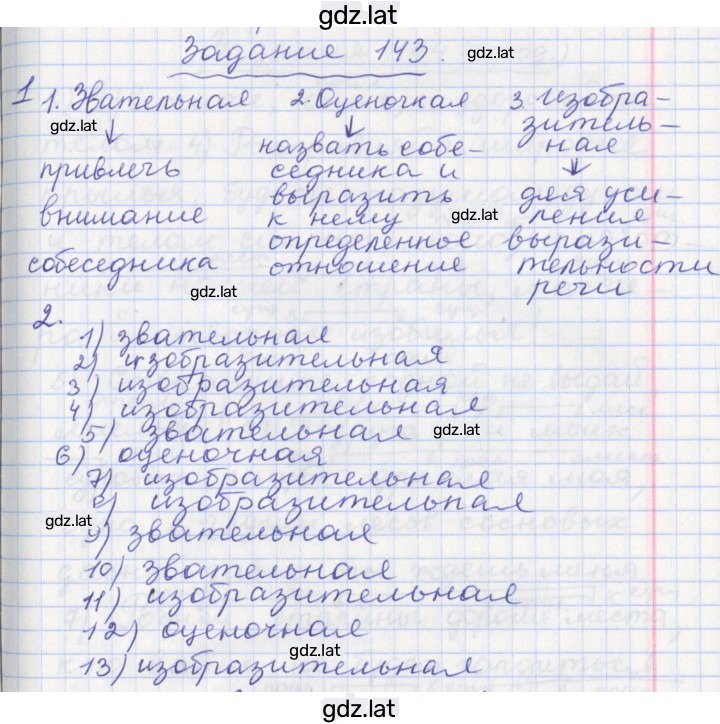 gdz.lat
Задание 143.
1 1. Звательная 2. Оценочкая 3. Изобра-
gdz.lat
зитель-
ная
привлечь
внимание
собеседника
назвать собе-
седника и
выразить
к нему
определенное
отношение
gdz.lat
для уси-
ления
вырази-
тельности
речи
gdz.lat
2.
1) звательная
2) изобразительная
3) изобразительная
4) изобразительная
5) звательная
gdz.lat
6) оценочная
7) изобразительная
8) изобразительная
gdz.lat
9) звательная
10) звательная
11) изобразительная
12) оценочная
gdz.lat
13) изобразительная
gdz.lat